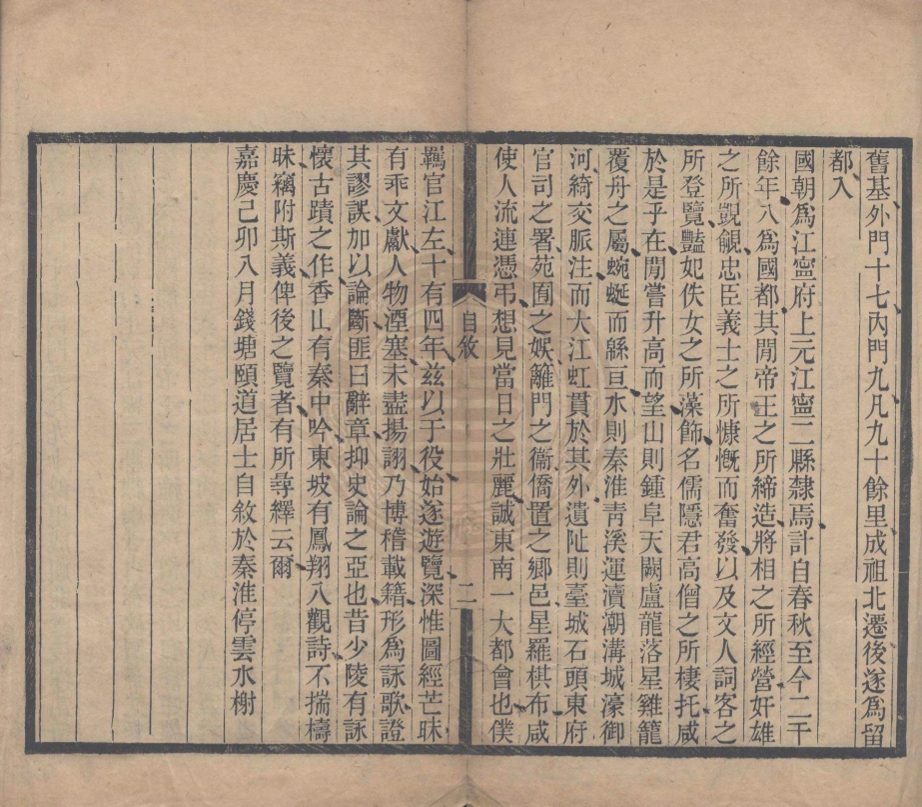 舊基外門十七內門九凡九十餘里成祖北遷後遂爲留
都入
國朝爲江寧府上元江寧二縣隸焉計自春秋至今二千
餘年八爲國都其閒帝王之所締造將相之所經營奸雄
之所覬覦忠臣義士之所慷慨而奮發以及文人詞客之
所登覽豔妃佚女之所藻飾名儒隱君高僧之所棲托咸
於是乎在閒嘗升高而望山則鍾阜天闕盧龍落星雞籠
覆舟之屬蜿蜒而緜亘水則秦淮靑溪運瀆潮溝城濠御
河綺交脈注而大江虹貫於其外遺阯則臺城石頭東府
官司之署苑囿之娛籬門之衞僑置之鄉邑星羅棋布咸
使人流連憑弔想見當日之壯麗誠東南一大都會也僕
自敘
二
羈官江左十有四年兹以于役始遂遊覽深惟圖經芒昧
有乖文獻人物湮塞未盡揚詡乃博稽載籍形爲詠歌證
其謬誤加以論斷匪曰辭章抑史論之亞也昔少陵有詠
懷古蹟之作香山有秦中吟東坡有鳳翔八觀詩不揣檮
昧竊附斯義俾後之覽者有所尋繹云爾
嘉慶己卯八月錢塘頤道居士自敘於秦淮停雲水榭